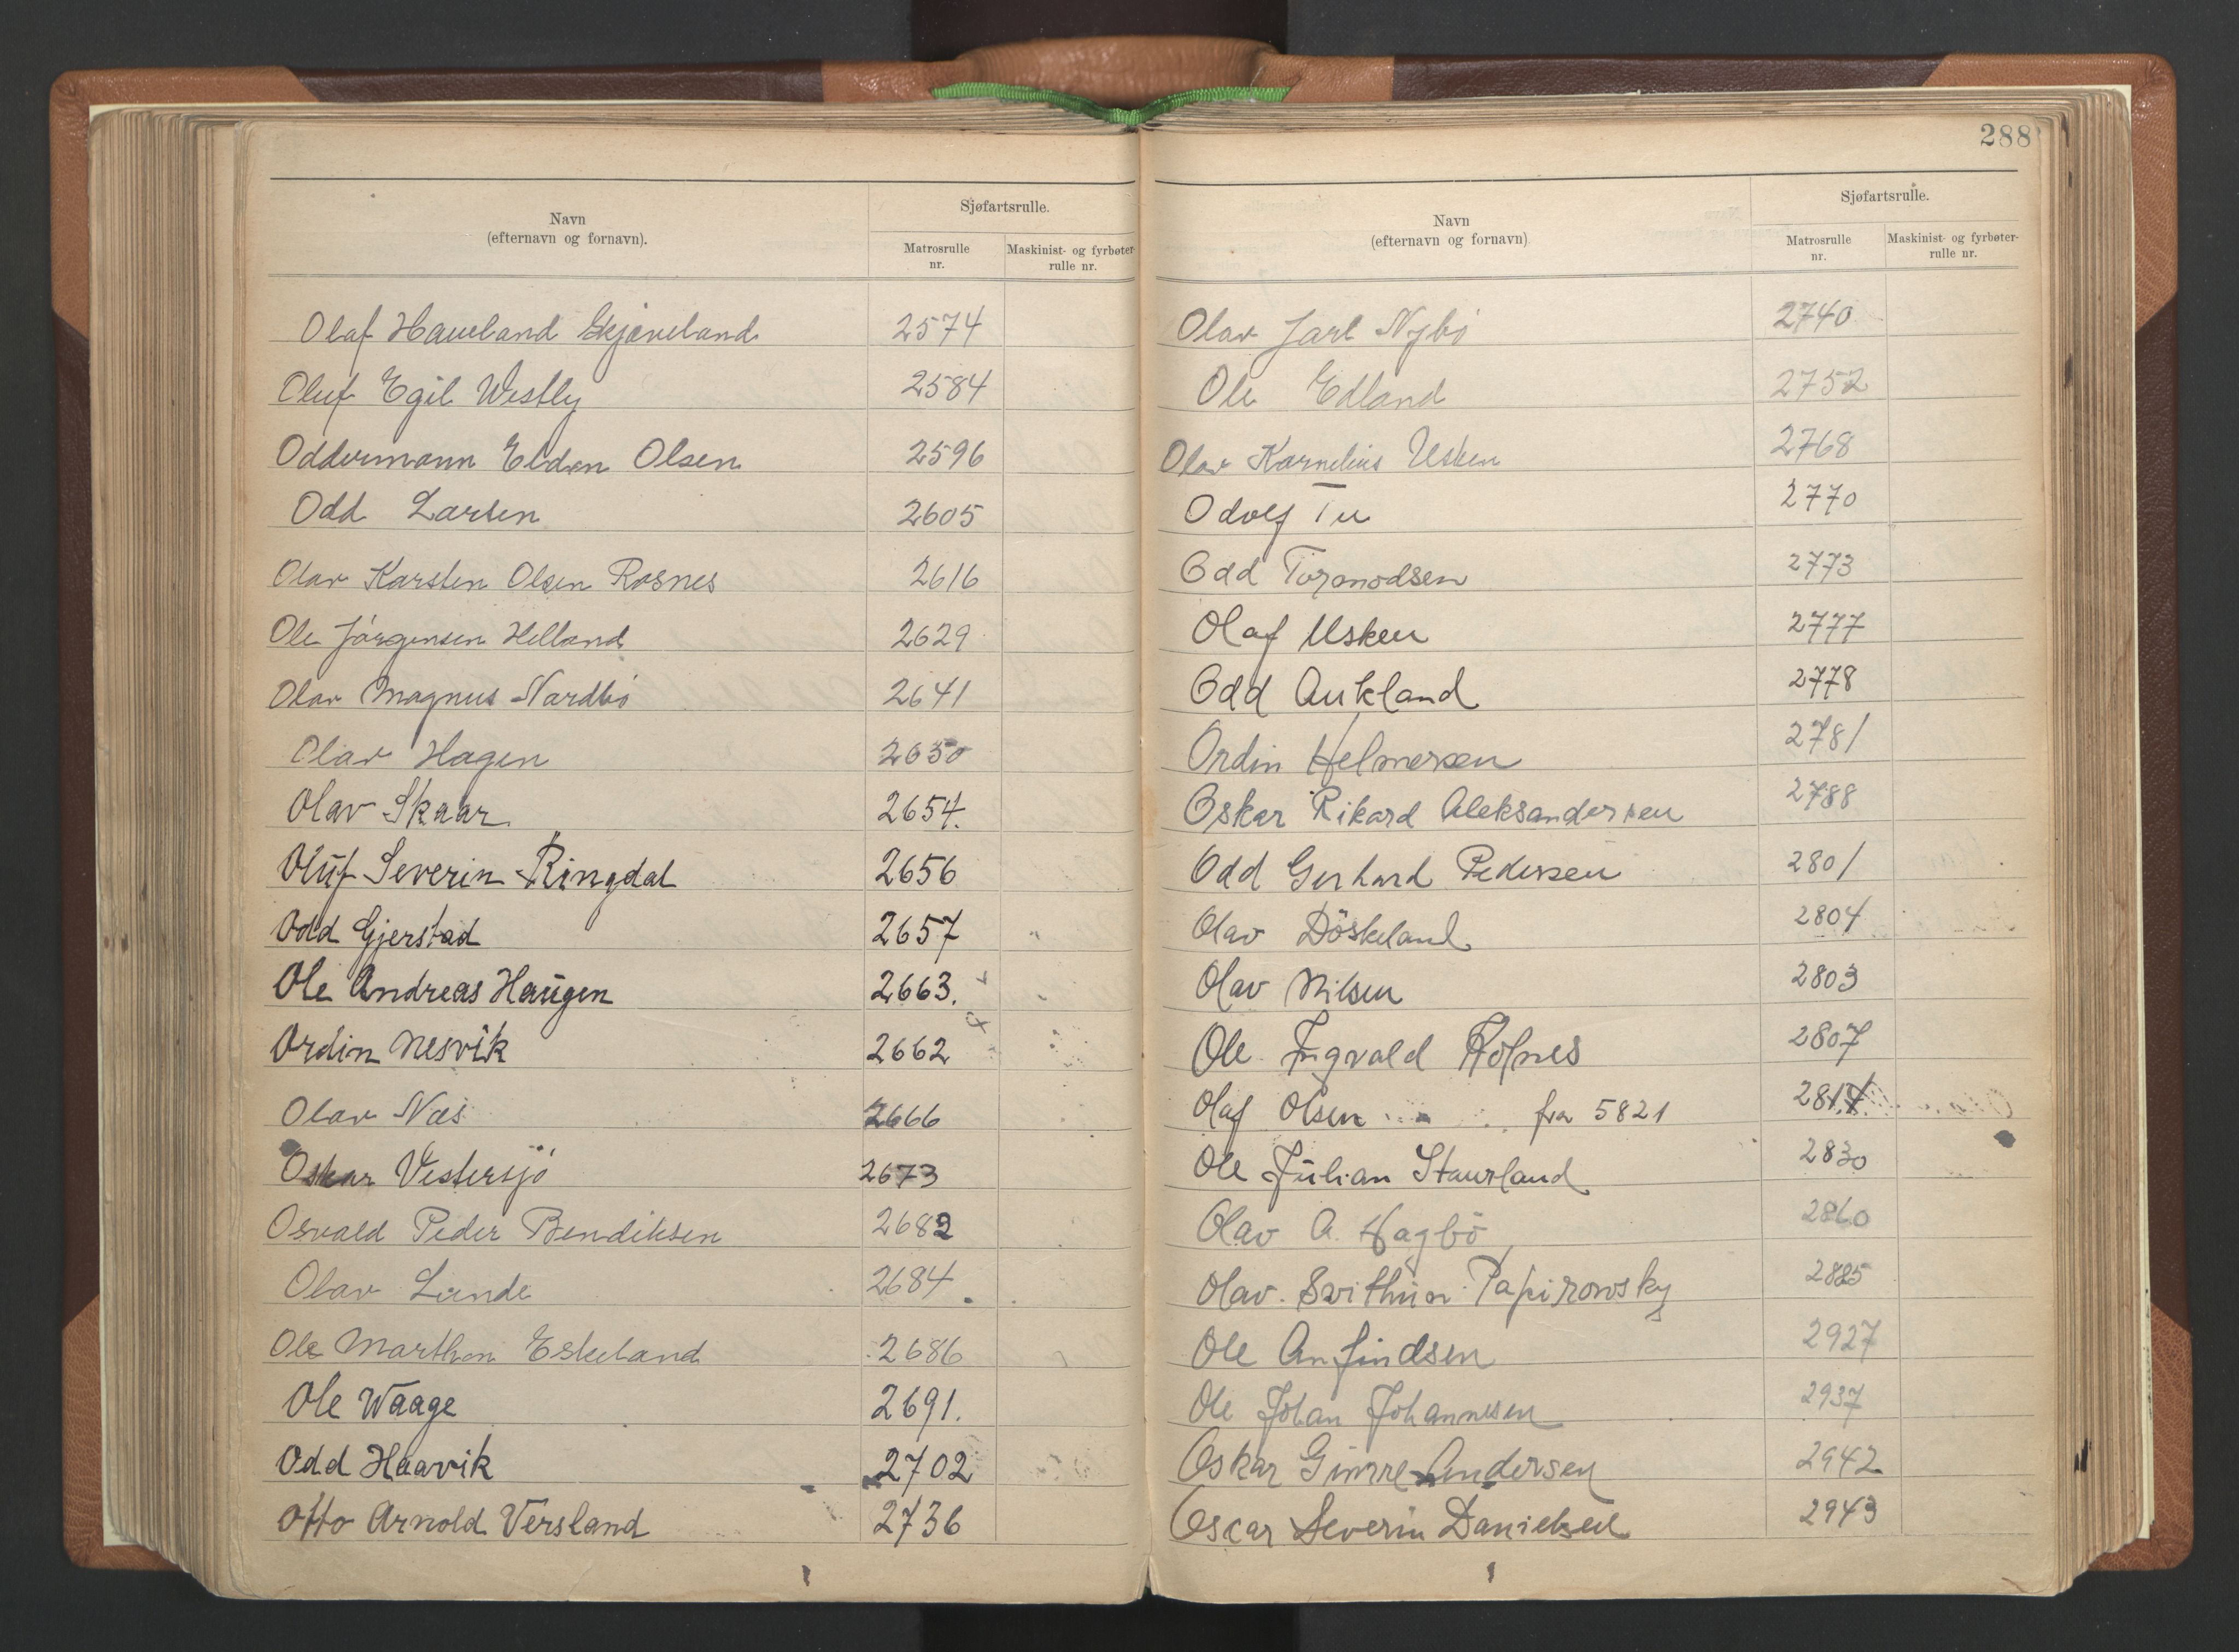 Navn
(efternavn og fornavn).
Sjøfartsrulle.
Matrosrulle nr.
Maskinist- og fyrbøter-rulle nr.
Olaf Haueland Skjæveland 2574
Oluf Egil Westly 2584
Oddvrmann Eldon Olsen 2596
Odd Larsen 2605
Olav Karsten Olsen Rosnes 2616
Ole Jörgensen Helland 2629
Olav Magnus Nordbö 2641
Olav Hagen 2650
Olav Skaar 2654.
Oluf Severin Ringdal 2656
Odd Gjerstad 2657
Ole Andreas Haugen 2663.
Ordin Nesvik 2662
Olav Næs 2666
Oskar Vestersjö 2673
Osvald Peder Bendiksen 2682
Olav Lunde 2684
Ole Marthon Eskeland 2686
Ole Waage 2691.
Odd Haavik 2702
Otto Arnold Versland 2736
288
Navn
(efternavn og fornavn)
Sjøfartsrulle.
Matrosrulle nr.
Maskinist- og fyrbøter-rulle nr.
Olav Jarl Nybö 2740
Ole Edland 2752
Olav Kornelius Usken 2768
Odolf Tu 2770
Odd Tormodsen 2773
Olaf Usken 2777
Odd Aukland 2778
Ordin Helmersen 2781
Oskar Rikard Aleksandersen 2788
Odd Gerhard Pedersen 2801
Olav Döskeland 2804
Olav Nilsen 2803
Ole Ingvald Hofnes 2807
Olaf Olsen fra 5821
Ole Julian Staurland 2830
Olav A. Hagbö 2860
Olav Svithun Papirowsky 2885
Ole Anfindsen 2927
Ole Johan Johannesen 2937
Oskar Gimre Andersen 2942
Oscar Severin Danielsen 2943